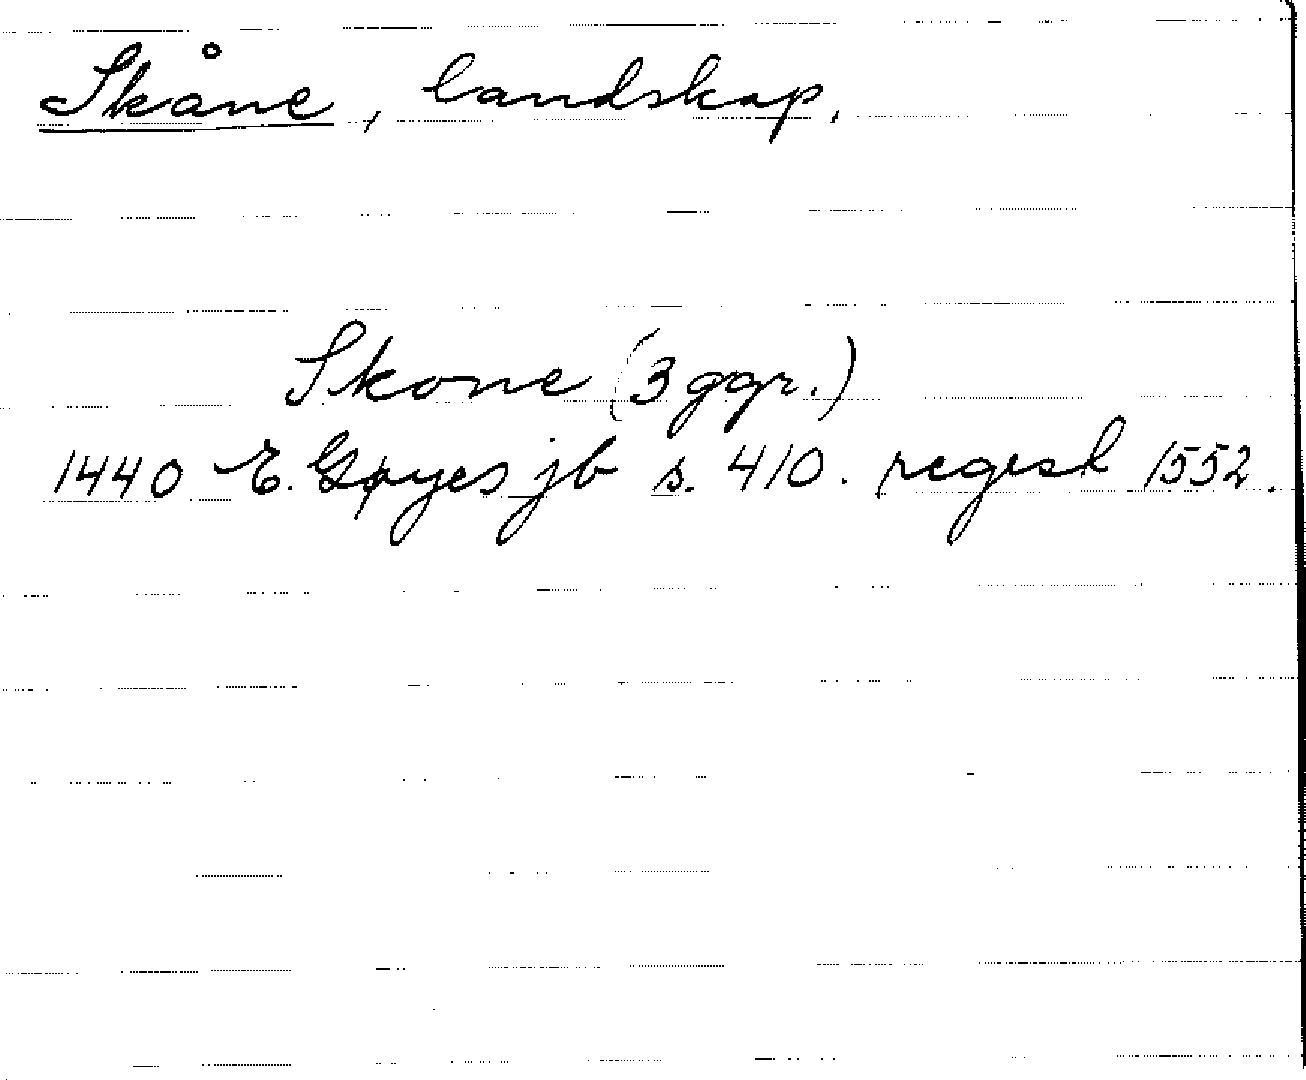 Skåne, landskap.
Skone (3 ggr.)
1440 E. Gøyes jb s. 410. regest 1552.